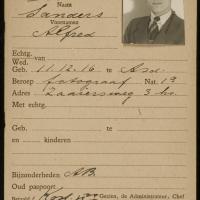 Naam
Sanders
Voornamen
Alfred
Echtg.
Wed. van
Geb. 11.12.16 te Asd.
Beroep fotograaf Nat. 19
Adres Zaaiersweg 3 hs.
Met echtg.
Geb. te
en kinderen
Bijzonderheden AB
Oud paspoort
Betaald Gezien, de Administrateur, Chef